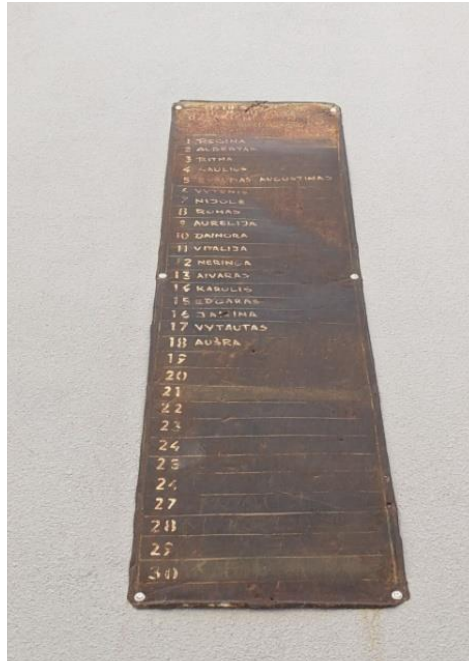 1 REGINA
2 ALBERTAS
3 RITMA
4 SAULIUS
5 EVALDAS AUGUSTINAS
6 VYTENIS
7 NIJOLĖ
8 ROMAS
9 AURELIJA
10 DAINORA
11 VITALIJA
12 NERINGA
13 AIVARAS
14 KAROLIS
15 EDGARAS
16 JANINA
17 VYTAUTAS
18 AUŠRA
19
20
21
22
23
24
25
26
27
28
29
30